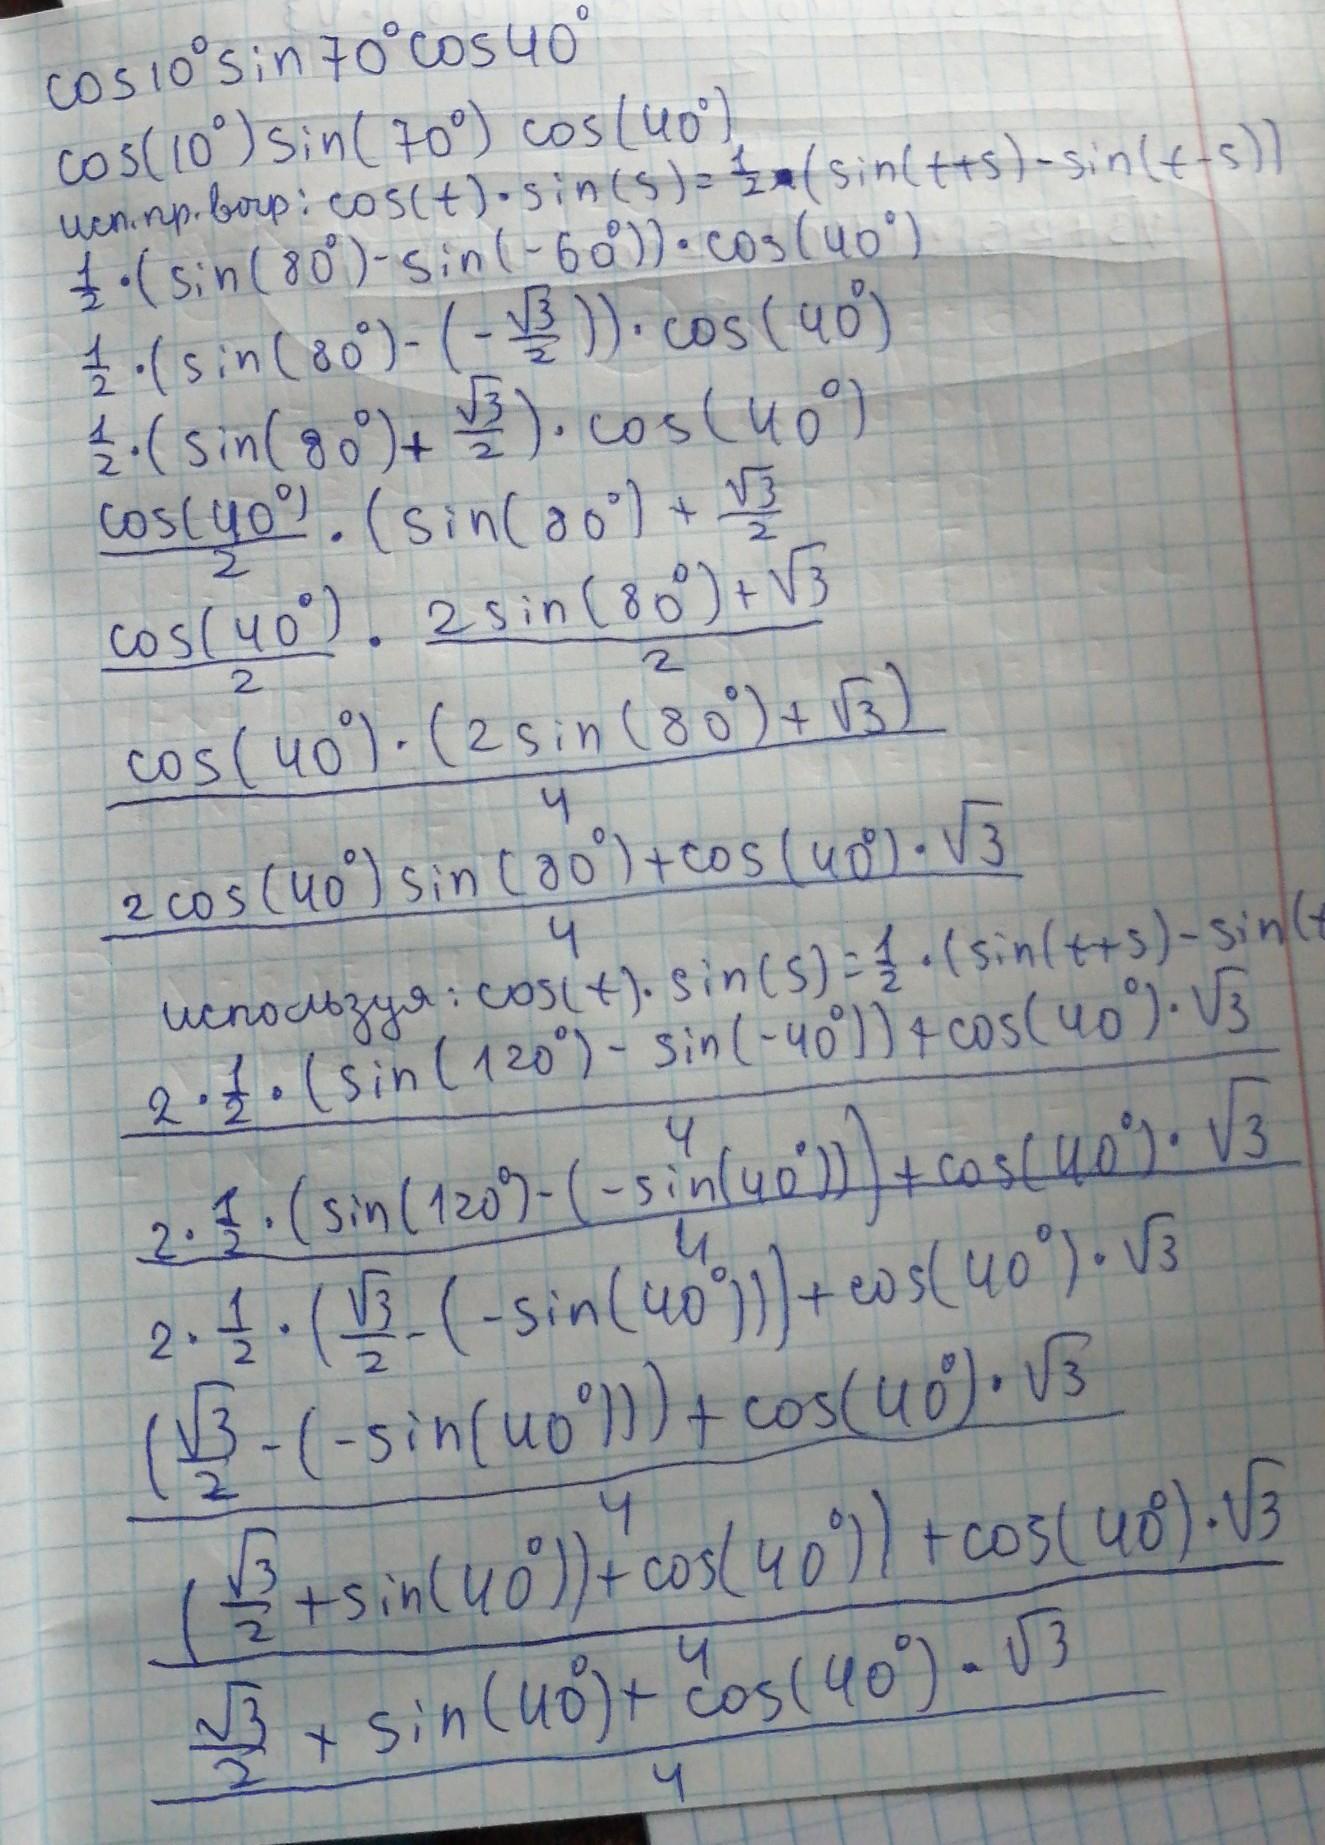 cos10°sin70°cos40°
cos(10°)sin(70°) cos(40°)
исп.пр.выр: cos(t)·sin(s)=1/2·(sin(t+s)-sin(t-s))
1/2·(sin(80°)-sin(-60°))·cos(40°)
1/2·(sin(80°)-(-√3/2))·cos(40°)
1/2·(sin(80°)+√3/2)·cos(40°)
cos(40°)/2·(sin(80°)+√3/2
cos(40°)/2·2sin(80°)+√3/2
cos(40°)·(2sin(80°)+√3)/4
2cos(40°)sin(80°)+cos(40°)·√3/4
используя: cos(t)·sin(s)=1/2·(sin(t+s)-sin(t
2·1/2·(sin(120°)-sin(-40°))+cos(40°)·√3/4
2·1/2·(sin(120°-(-sin(40°)))+cos(40°)·√3/4
2·1/2·(√3/2-(-sin(40°)))+cos(40°)·√3
(√3/2-(-sin(40°)))+cos(40°)·√3/4
(√3/2+sin(40°))+cos(40°))+cos(40°)·√3/4
√3/2+sin(40°)+cos(40°)·√3/4